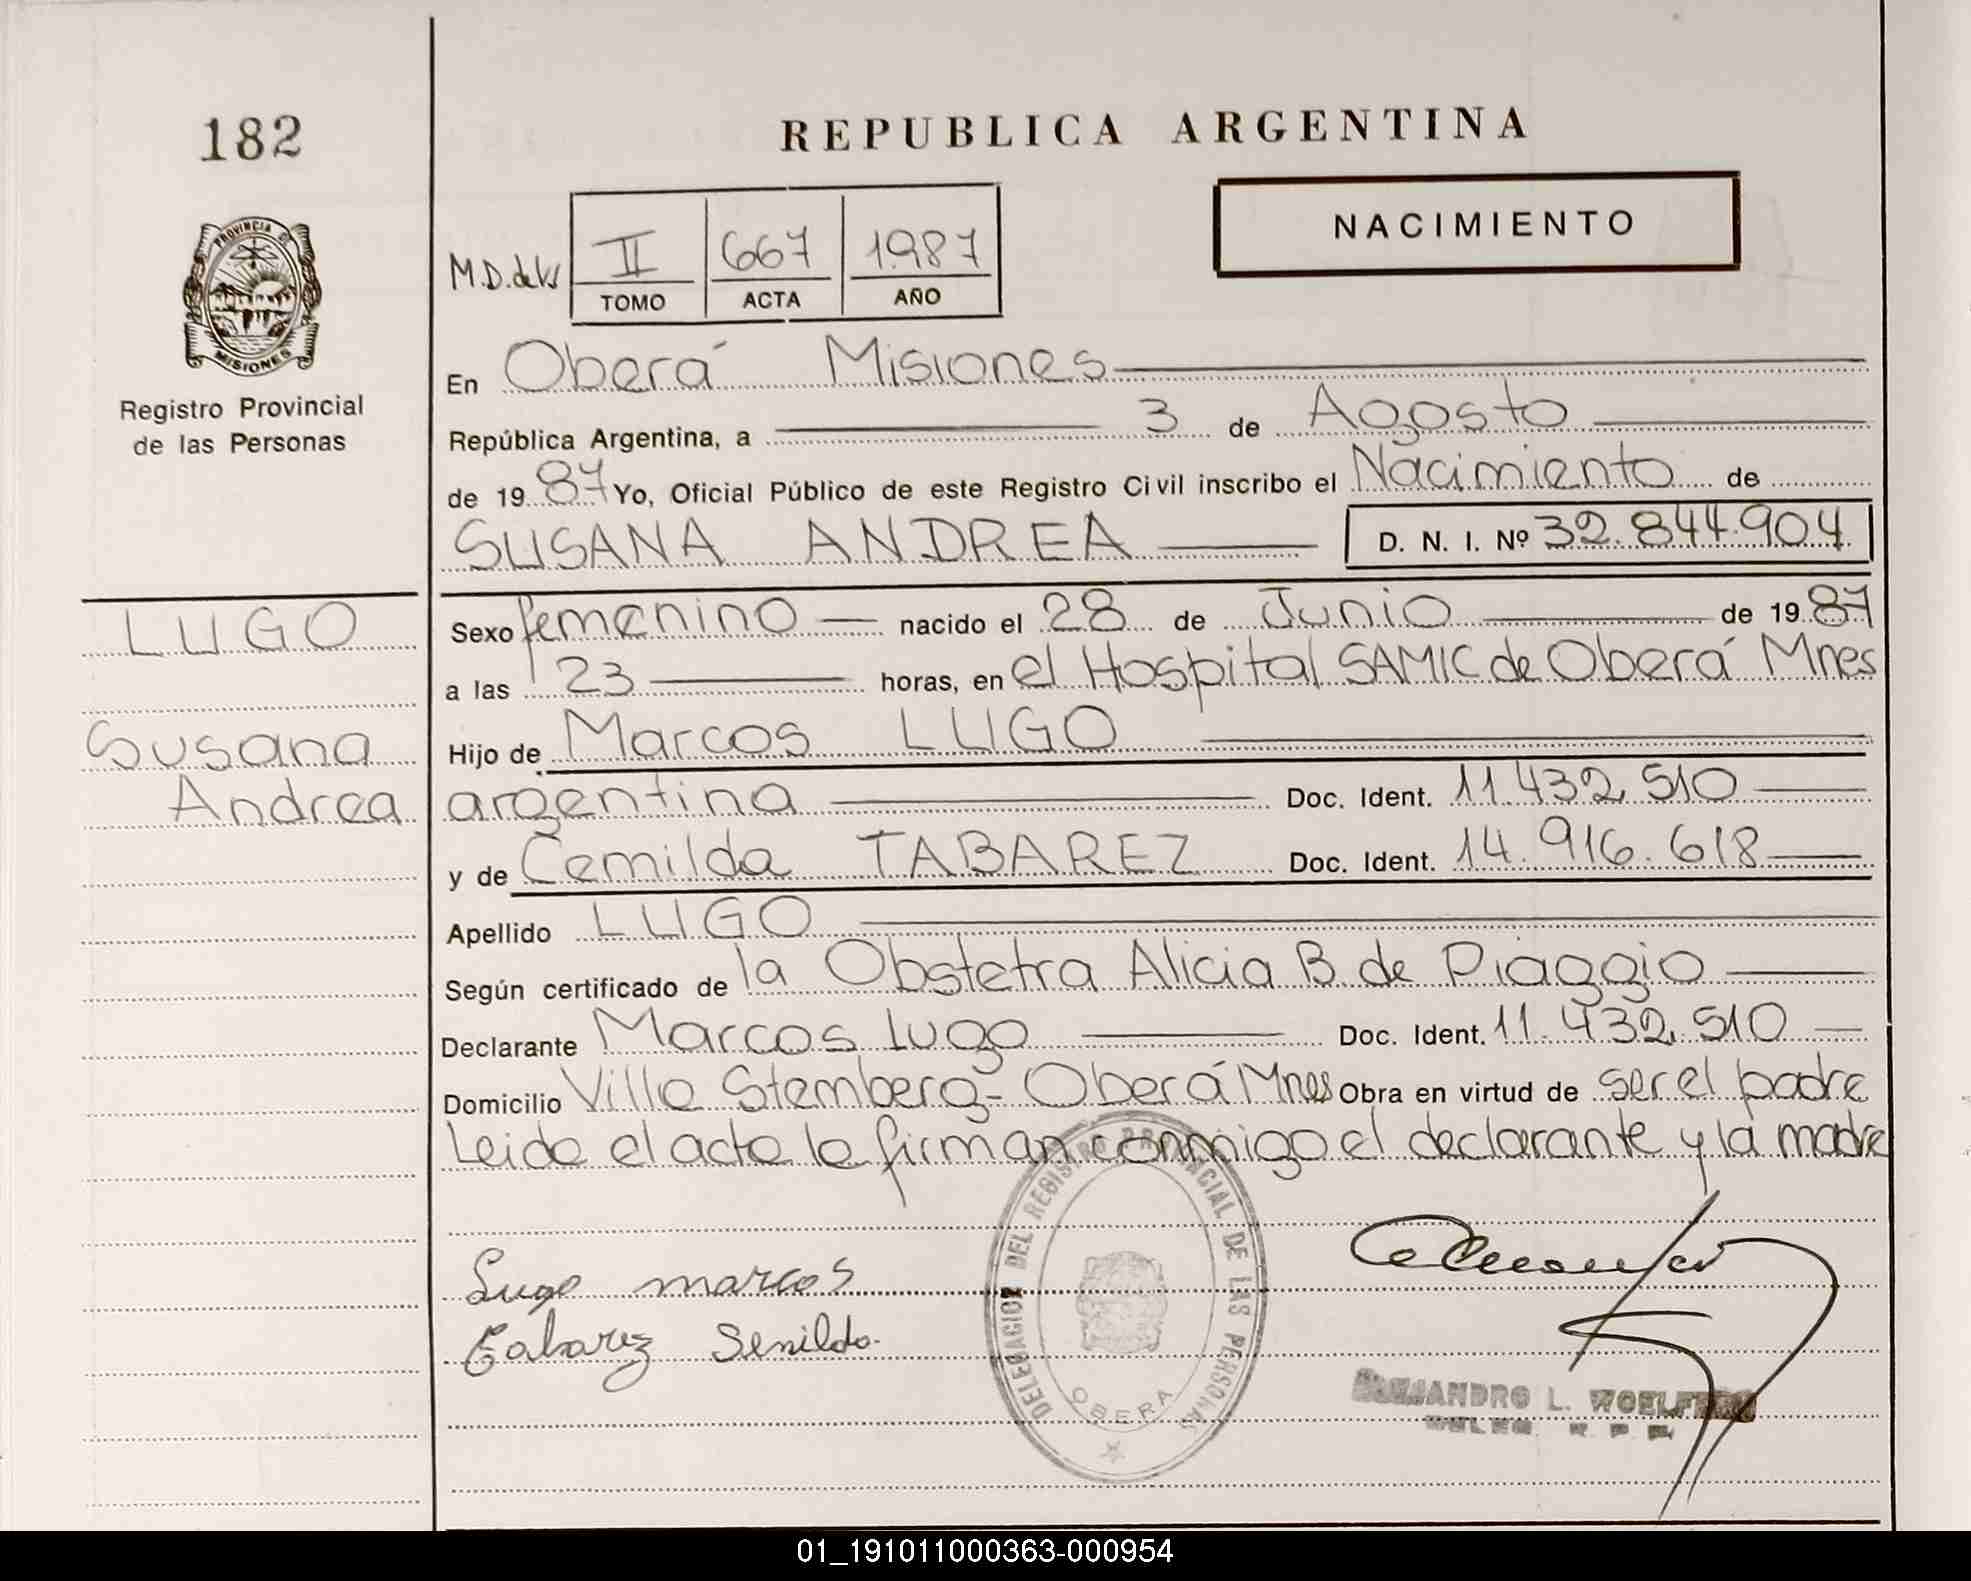 182
REPUBLICA ARGENTINA
NACIMIENTO
PROVINCIA DE
MISIONES
Registro Provincial
de las Personas
M.D. de
II 667 1987
TOMO ACTA AÑO
En Oberá Misiones
República Argentina, a 3 de Agosto
de 1987 Yo, Oficial Público de este Registro Civil inscribo el Nacimiento de
SUSANA ANDREA D. N. I. Nº 32.844.904
LUGO
Susana
Andrea
Sexo femenino nacido el 28 de Junio de 1987
a las 23 horas, en el Hospital SAMIC de Oberá Mnes
Hijo de Marcos LUGO
argentina Doc. Ident. 11.432.510
y de Cemilda TABAREZ Doc. Ident. 14.916.618
Apellido LUGO
Según certificado de la Obstetra Alicia B. de Piaggio
Declarante Marcos Lugo Doc. Ident. 11.432.510
Domicilio Villa Stemberg - Oberá Mnes Obra en virtud de ser el padre
Leida el acta la firman conmigo el declarante y la madre
Lugo marcos
Tabarez Senilda.
DELEGACION DEL REGISTRO PROVINCIAL DE LAS PERSONAS
OBERA
L.
01_191011000363-000954